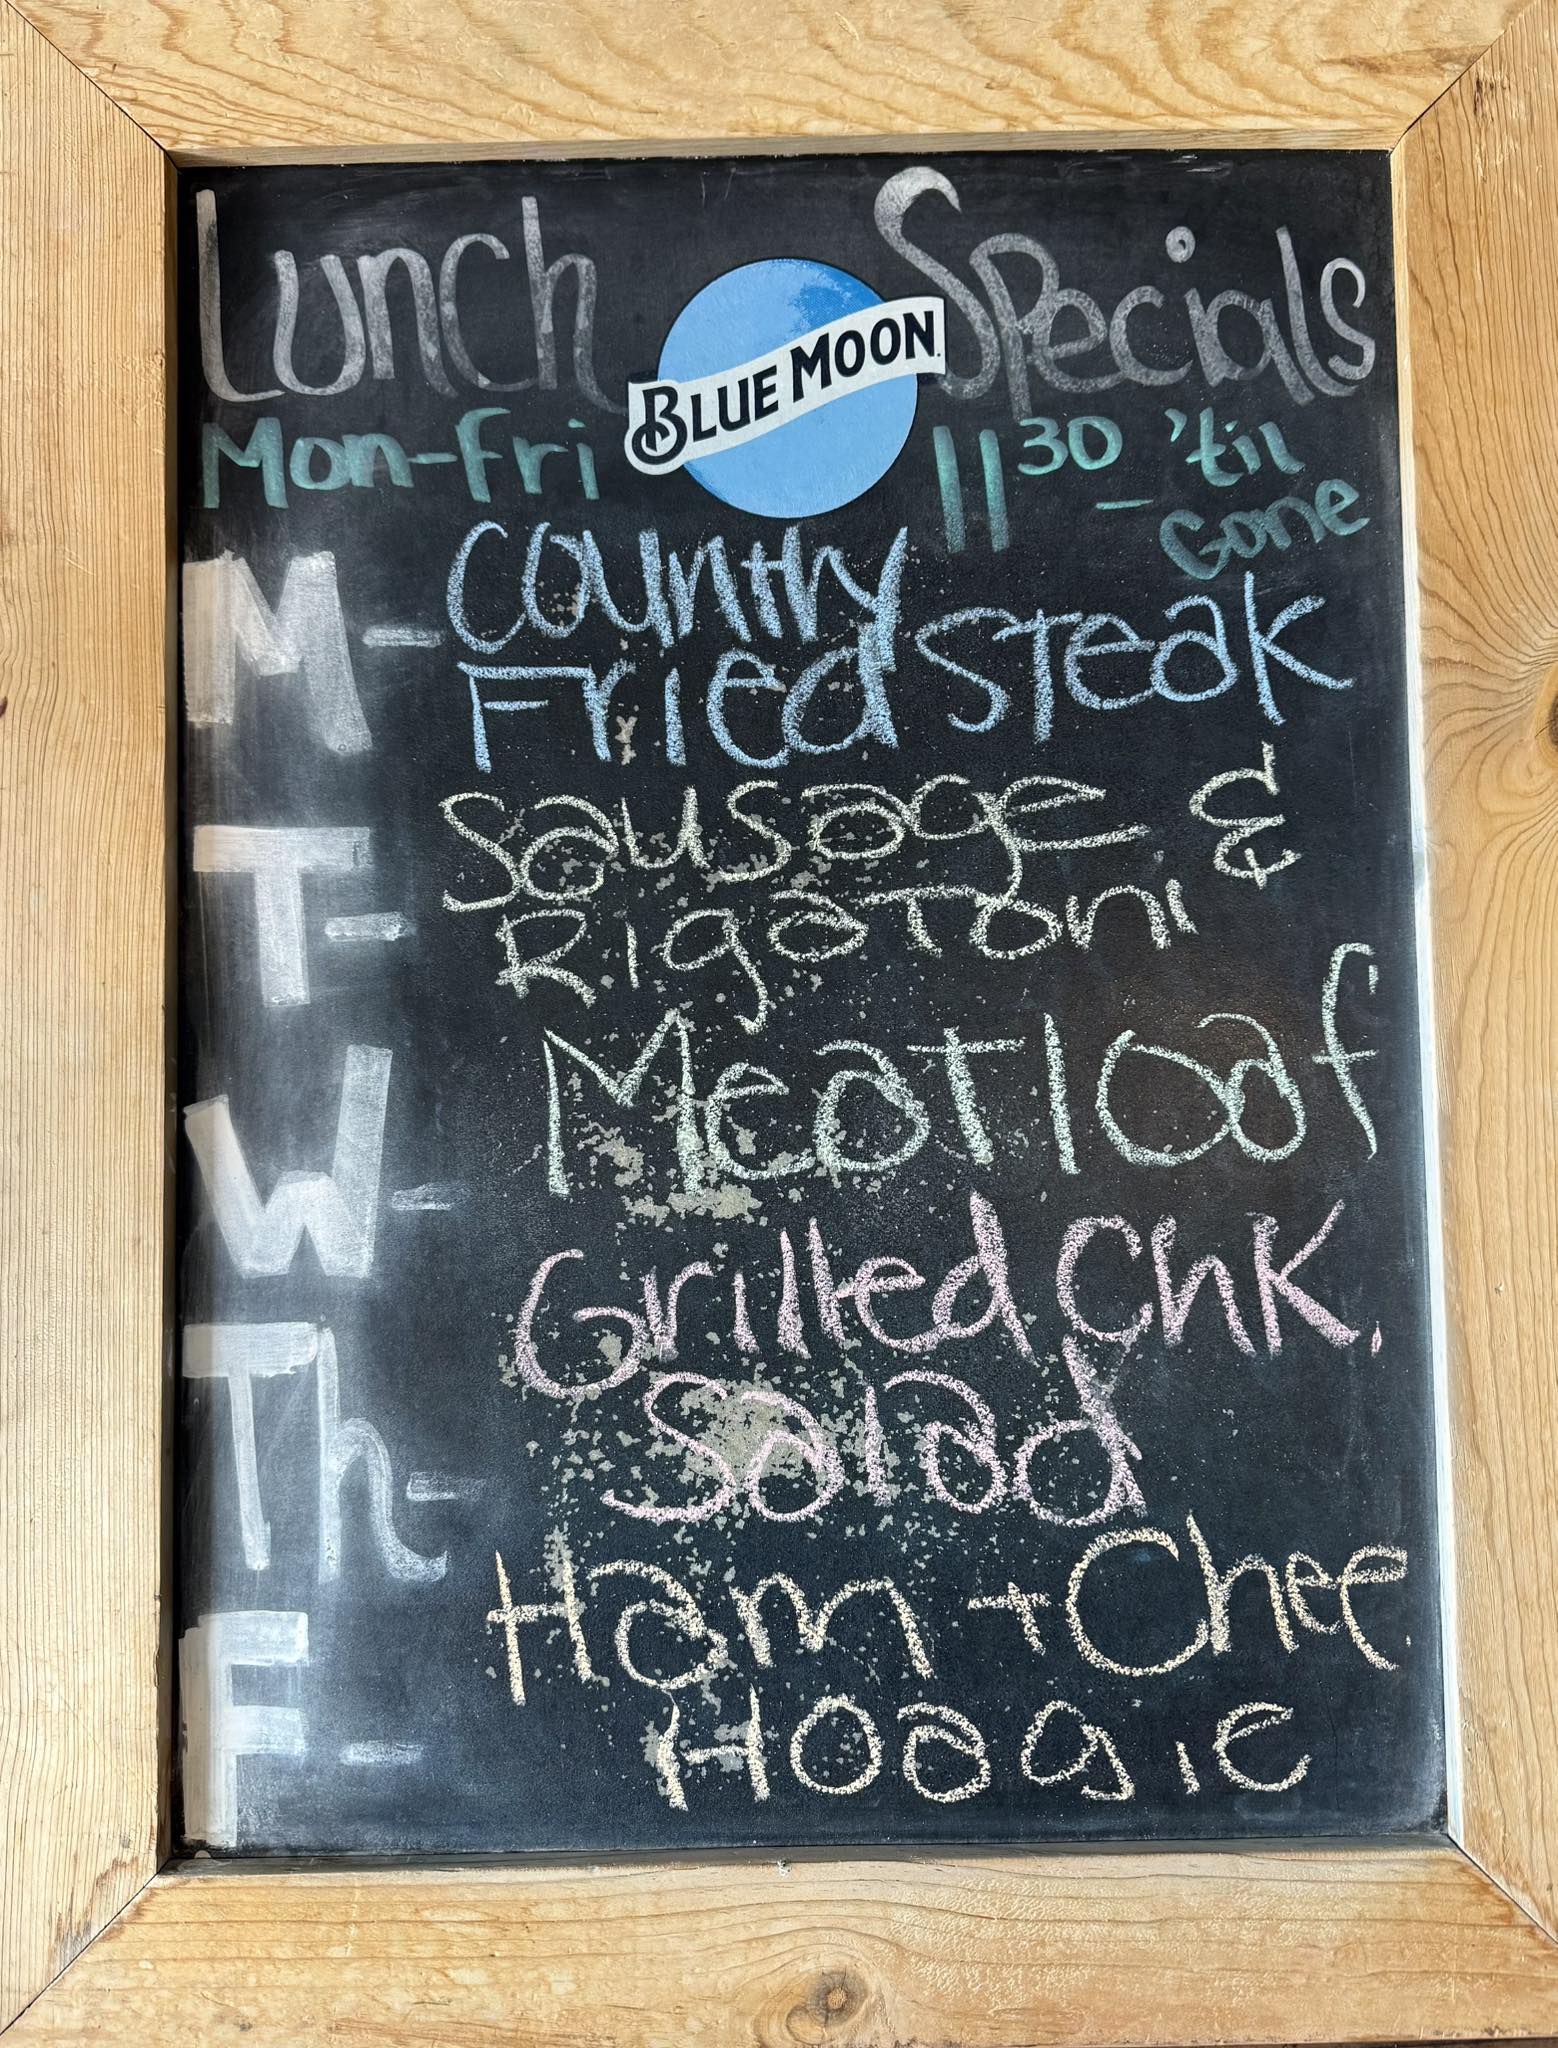 Lunch Specials
BLUE MOON
Mon-Fri 11 30 - 'til
Gone
M- Country
Fried Steak
T- Sausage &
Rigatoni
W- Meatloaf
Th- Grilled Chk.
Salad
F- Ham + Chee
Hoagie